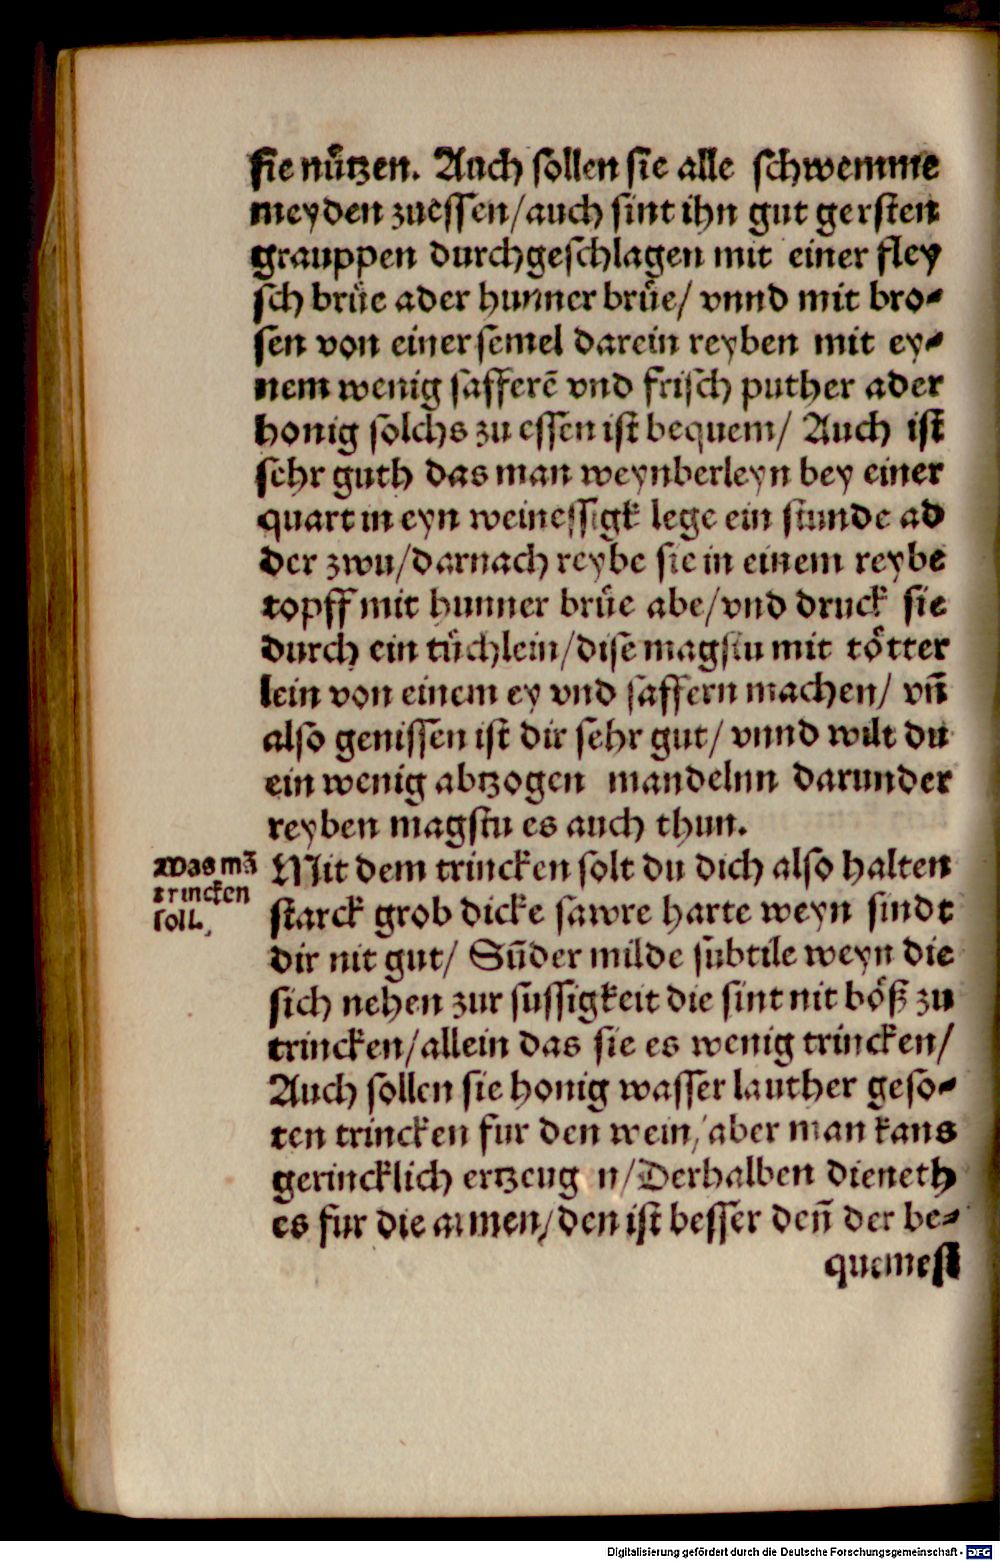 sie nuͤtzen. Auch sollen sie alle schwemme
meyden zuessen/auch sint ihn gut gersten
grauppen durchgeschlagen mit einer fley
sch bruͤe ader hunner bruͤe/ vnnd mit bro⸗
sen von einer semel darein reyben mit ey⸗
nem wenig safferē vnd frisch puther ader
honig solchs zu essen ist bequem/ Auch ist
sehr guth das man weynberleyn bey einer
quart in eyn weinessigk lege ein stunde ad
der zwu/darnach reybe sie in einem reybe
topff mit hunner bruͤe abe/vnd druck sie
durch ein tuͤchlein/dise magstu mit toͤtter
lein von einem ey vnd saffern machen/ vn̄
also genissen ist dir sehr gut/ vnnd wilt du
ein wenig abtzogen mandelnn darunder
reyben magstu es auch thun.
Was mā
trincken
soll.
Mit dem trincken solt du dich also halten
starck grob dicke sawre harte weyn sindt
dir nit gut/ Sūder milde subtile weyn die
sich nehen zur sussigkeit die sint nit boͤß zu
trincken/allein das sie es wenig trincken/
Auch sollen sie honig wasser lauther geso⸗
ten trincken fur den wein/aber man kans
gerincklich ertzeug n/Derhalben dieneth
es fur die armen/den ist besser den̄ der be⸗
quemest
Digitalisierung gefördert durch die Deutsche Forschungsgemeinschaft - DFG